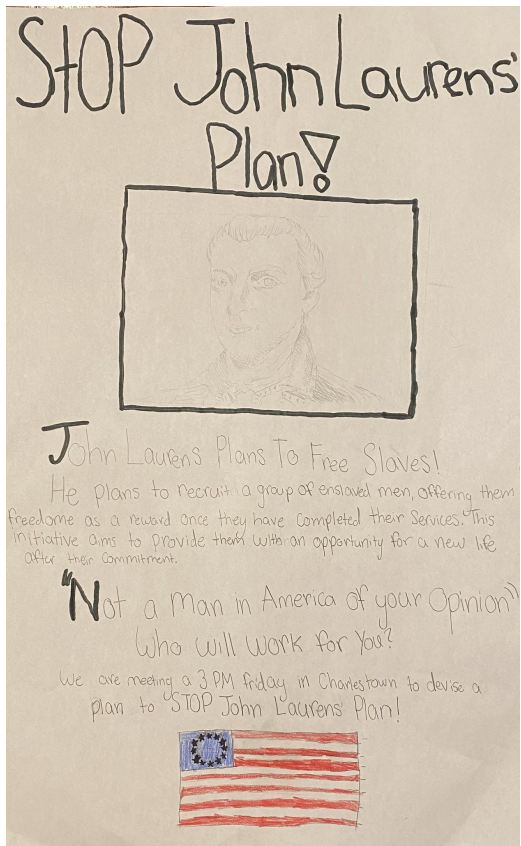 STOP John Laurens'
Plan!
John Laurens Plans To Free Slaves!
He plans to recruit a group of enslaved men, offering them
freedome as a reward once they have completed their Services. This
initiative aims to provide them with an opportunity for a new life
after their commitment.
"Not a Man in America of your Opinion"
Who will work for You?
We are meeting a 3 PM friday in Charlestown to devise a
plan to STOP John Laurens' Plan!